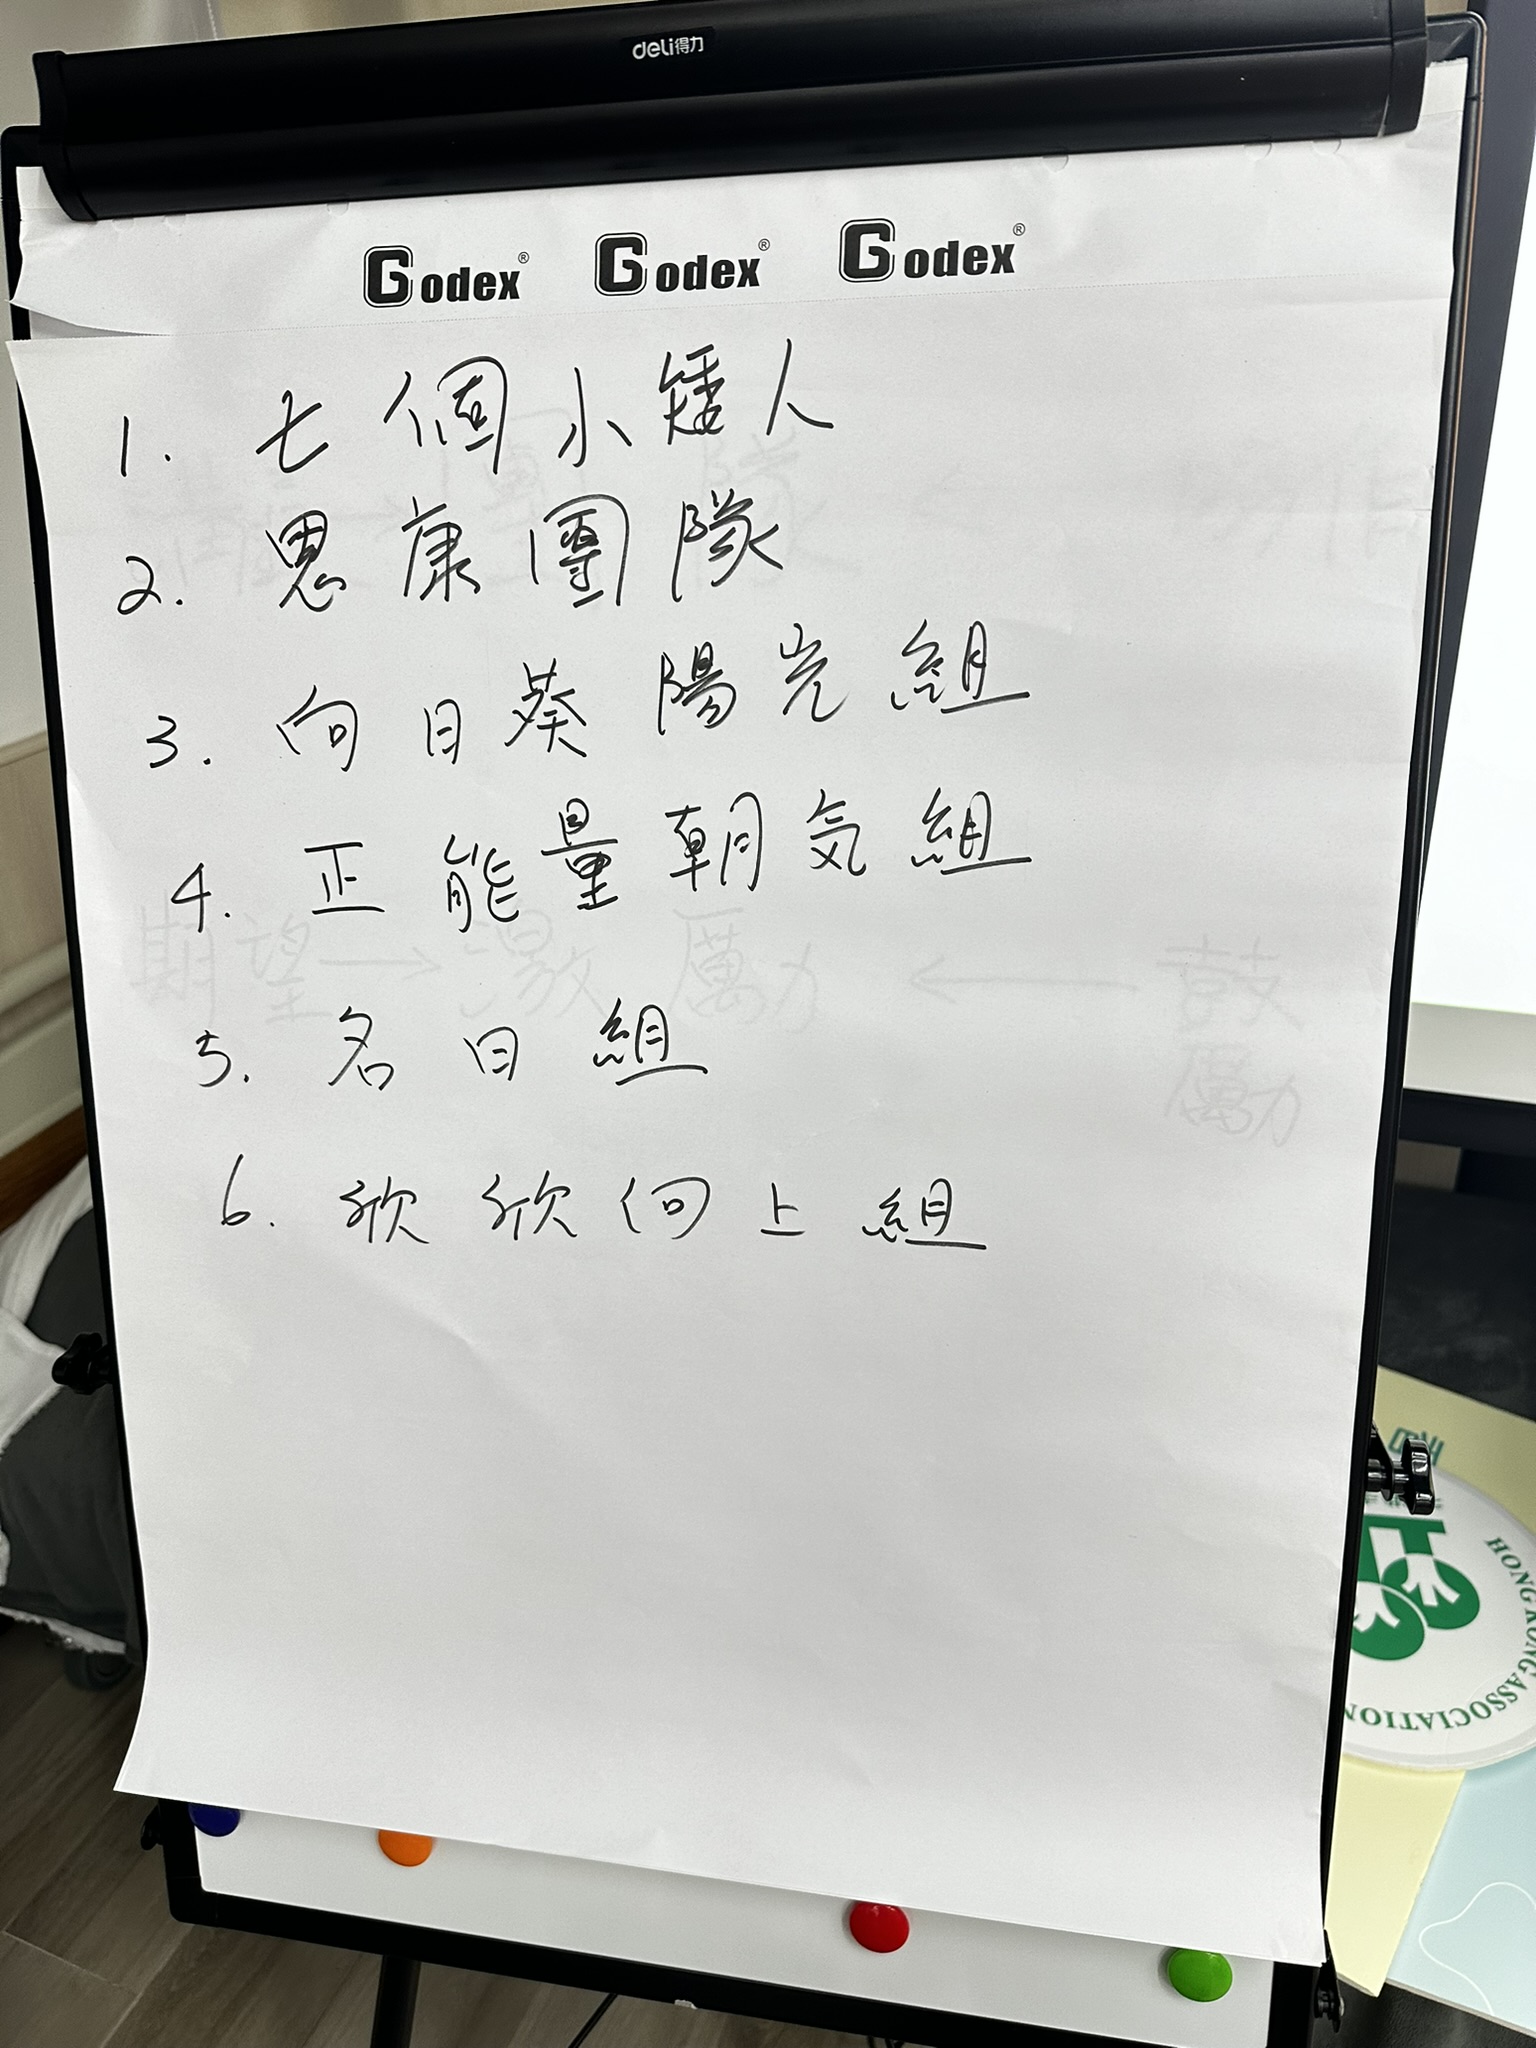 deli得力
Godex® Godex® Godex®
1. 七個小矮人
2. 恩康團隊
3. 向日葵陽光組
4. 正能量朝気組
期望→激勵←鼓
勵
5. 名日組
6. 欣欣向上組
HONG KONG ASSOCIATION